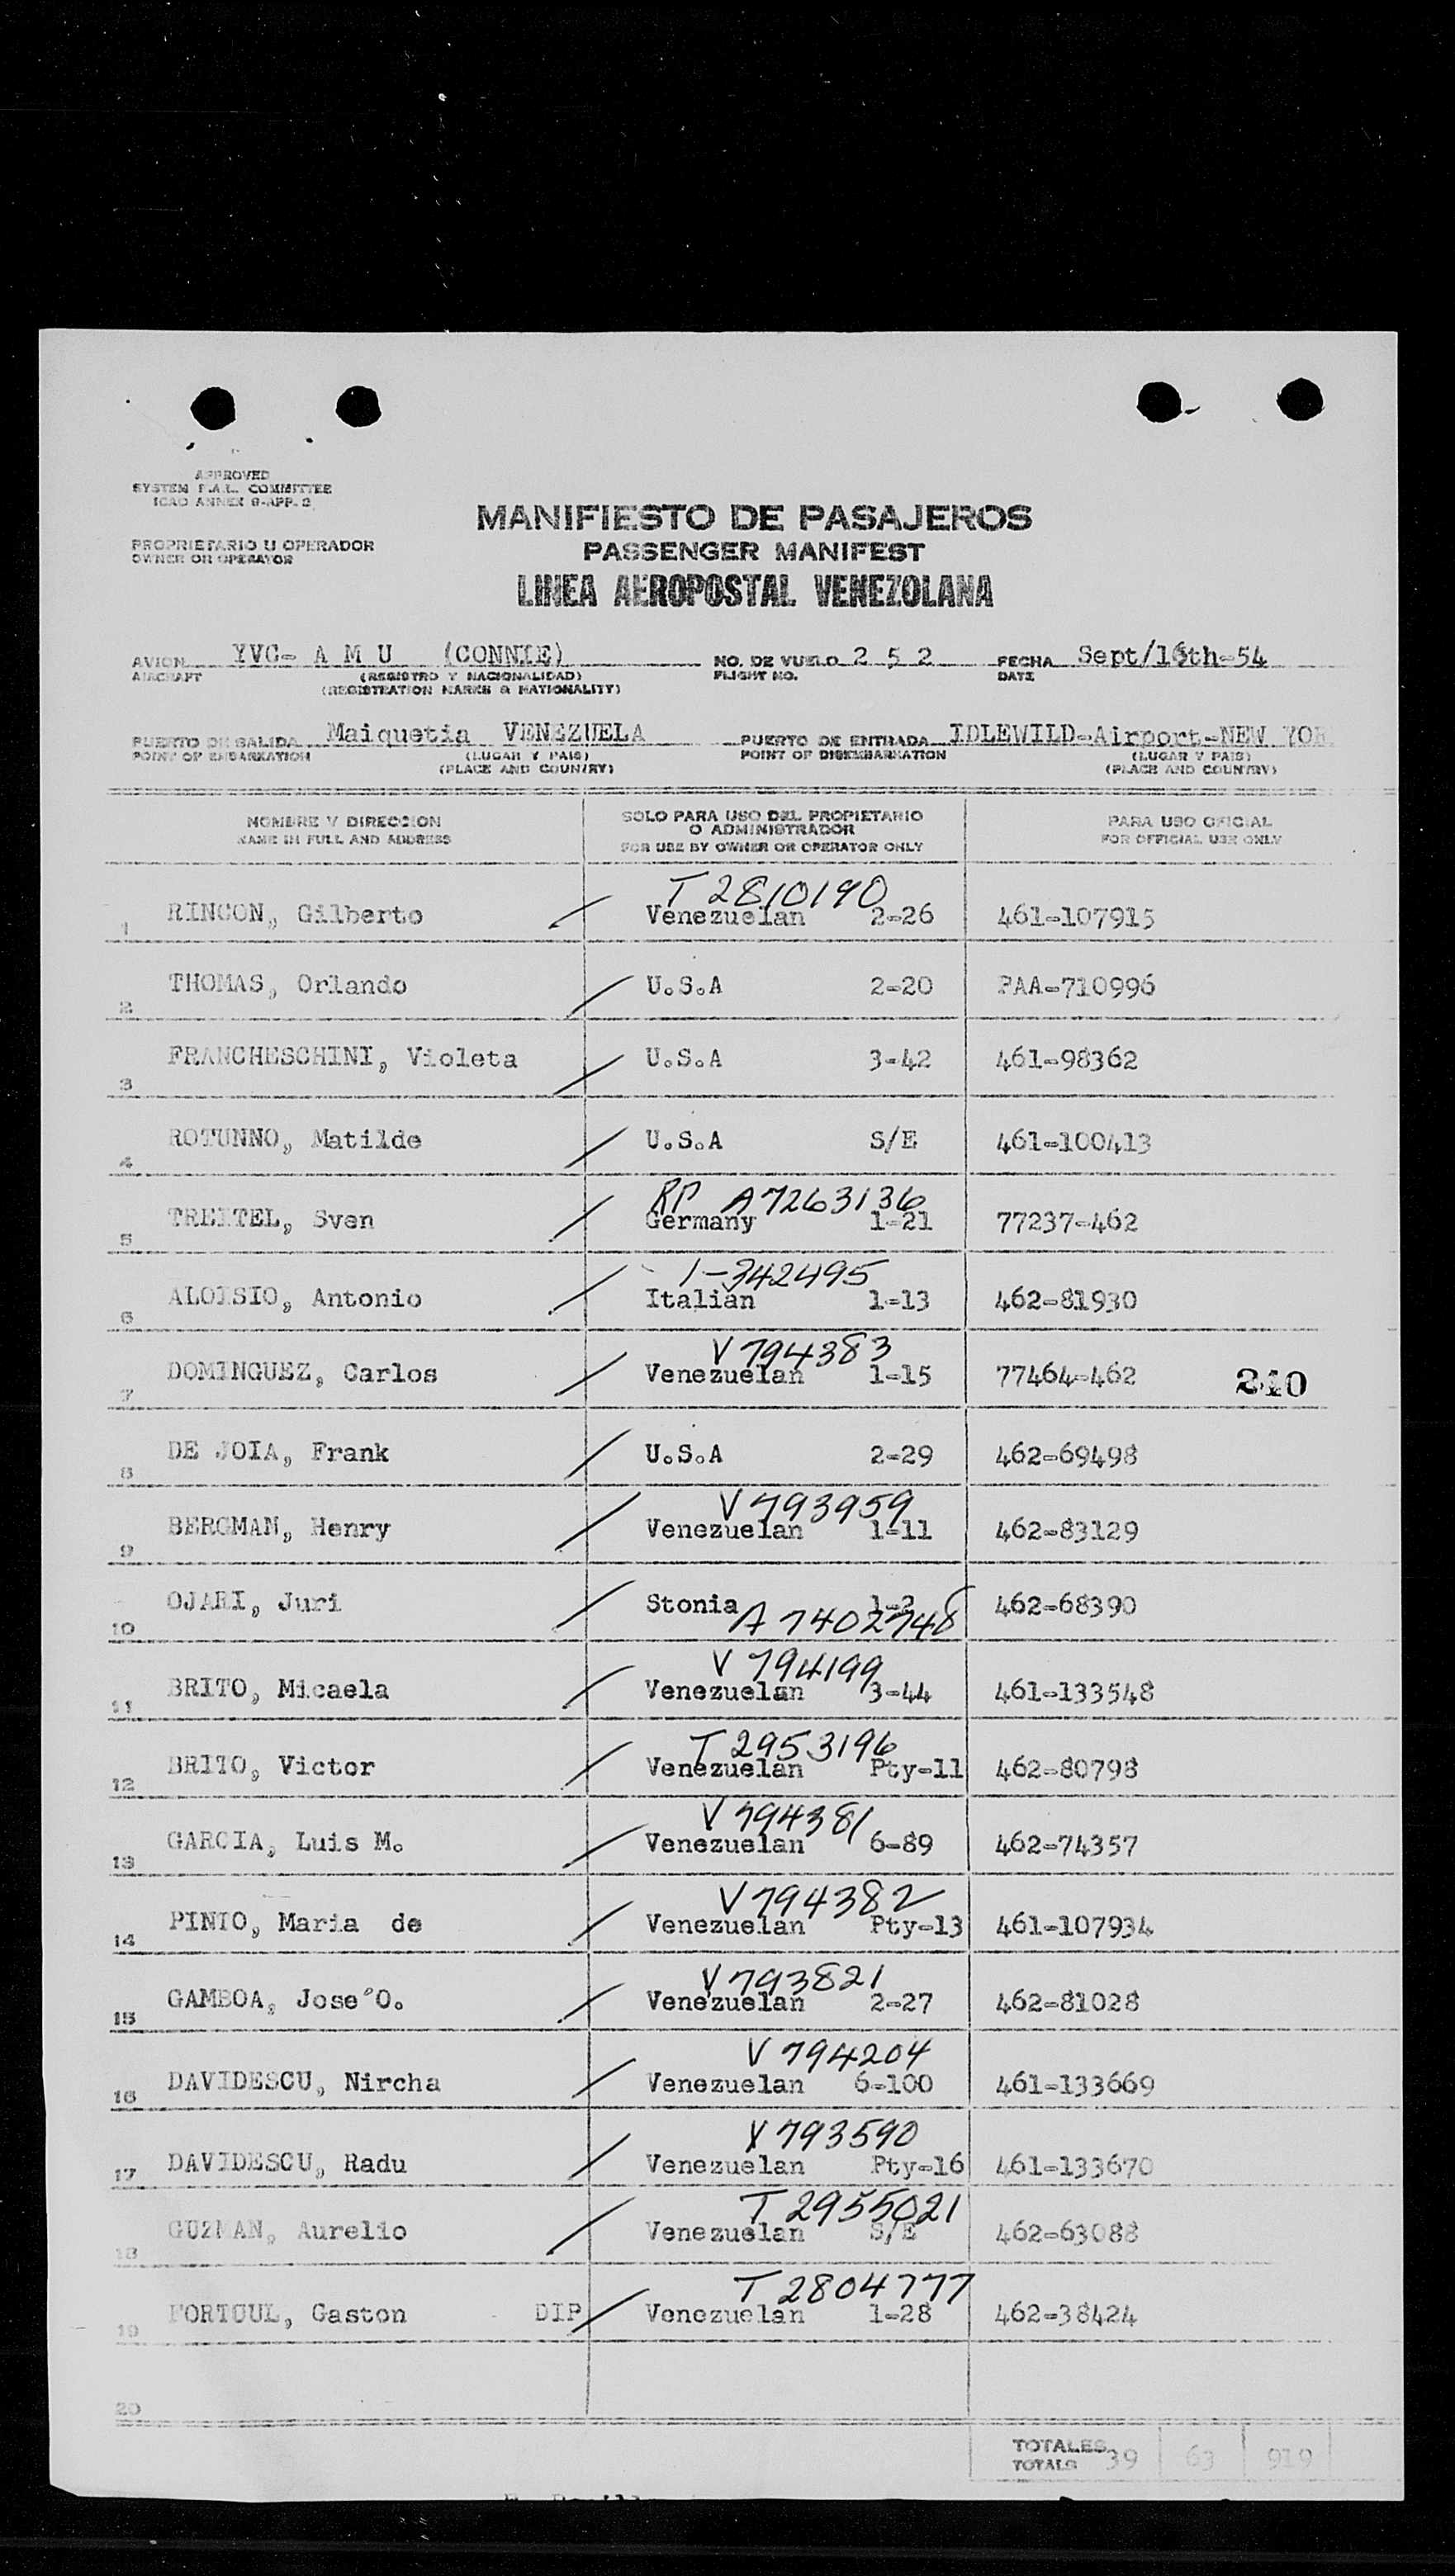 APPROVED
SYSTEM F.A.L. COMMITTEE
ICAO ANNEX 9-APP. 2
MANIFIESTO DE PASAJEROS
PROPRIETARIO U OPERADOR
OWNER OR OPERATOR
PASSENGER MANIFEST
LINEA AEROPOSTAL VENEZOLANA
AVION YVC- A M U (CONNIE) NO. DE VUELO 2 5 2 FECHA Sept/16th-54
AIRCRAFT (REGISTRO Y NACIONALIDAD) FLIGHT NO. DATE
(REGISTRATION MARKS & NATIONALITY)
PUERTO DE SALIDA Maiquetia VENEZUELA PUERTO DE ENTRADA IDLEWILD-Airport-NEW YOR
POINT OF EMBARKATION (LUGAR Y PAIS) POINT OF DISEMBARKATION (LUGAR Y PAIS)
(PLACE AND COUNTRY) (PLACE AND COUNTRY)
NOMBRE Y DIRECCION SOLO PARA USO DEL PROPIETARIO O ADMINISTRADOR PARA USO OFICIAL
NAME IN FULL AND ADDRESS FOR USE BY OWNER OR OPERATOR ONLY FOR OFFICIAL USE ONLY
T 2810190
1 RINCON, Gilberto / Venezuelan 2-26 461-107915
2 THOMAS, Orlando / U.S.A 2-20 PAA-710996
3 FRANCHESCHINI, Violeta / U.S.A 3-42 461-98362
4 ROTUNNO, Matilde / U.S.A S/E 461-100413
RP A7263136
5 TREITEL, Sven / Germany 1-21 77237-462
1-342495
6 ALOISIO, Antonio / Italian 1-13 462-81930
V 794383
7 DOMINGUEZ, Carlos / Venezuelan 1-15 77464-462 240
8 DE JOIA, Frank / U.S.A 2-29 462-69498
V 793959
9 BERGMAN, Henry / Venezuelan 1-11 462-83129
10 OJARI, Juri / Stonia 1-2 462-68390
A 7402748
V 794199
11 BRITO, Micaela / Venezuelan 3-44 461-133548
T 2953196
12 BRITO, Victor / Venezuelan Pty-11 462-80798
V 794381
13 GARCIA, Luis M. / Venezuelan 6-89 462-74357
V 794382
14 PINTO, Maria de / Venezuelan Pty-13 461-107934
V 793821
15 GAMBOA, Jose´O. / Venezuelan 2-27 462-81028
V 794204
16 DAVIDESCU, Nircha / Venezuelan 6-100 461-133669
V 793590
17 DAVIDESCU, Radu / Venezuelan Pty-16 461-133670
T 2955021
18 GUZMAN, Aurelio / Venezuelan S/E 462-63088
T 2804777
19 FORTOUL, Gaston DIP / Venezuelan 1-28 462-38424
20
TOTALES 39 63 919
TOTALS